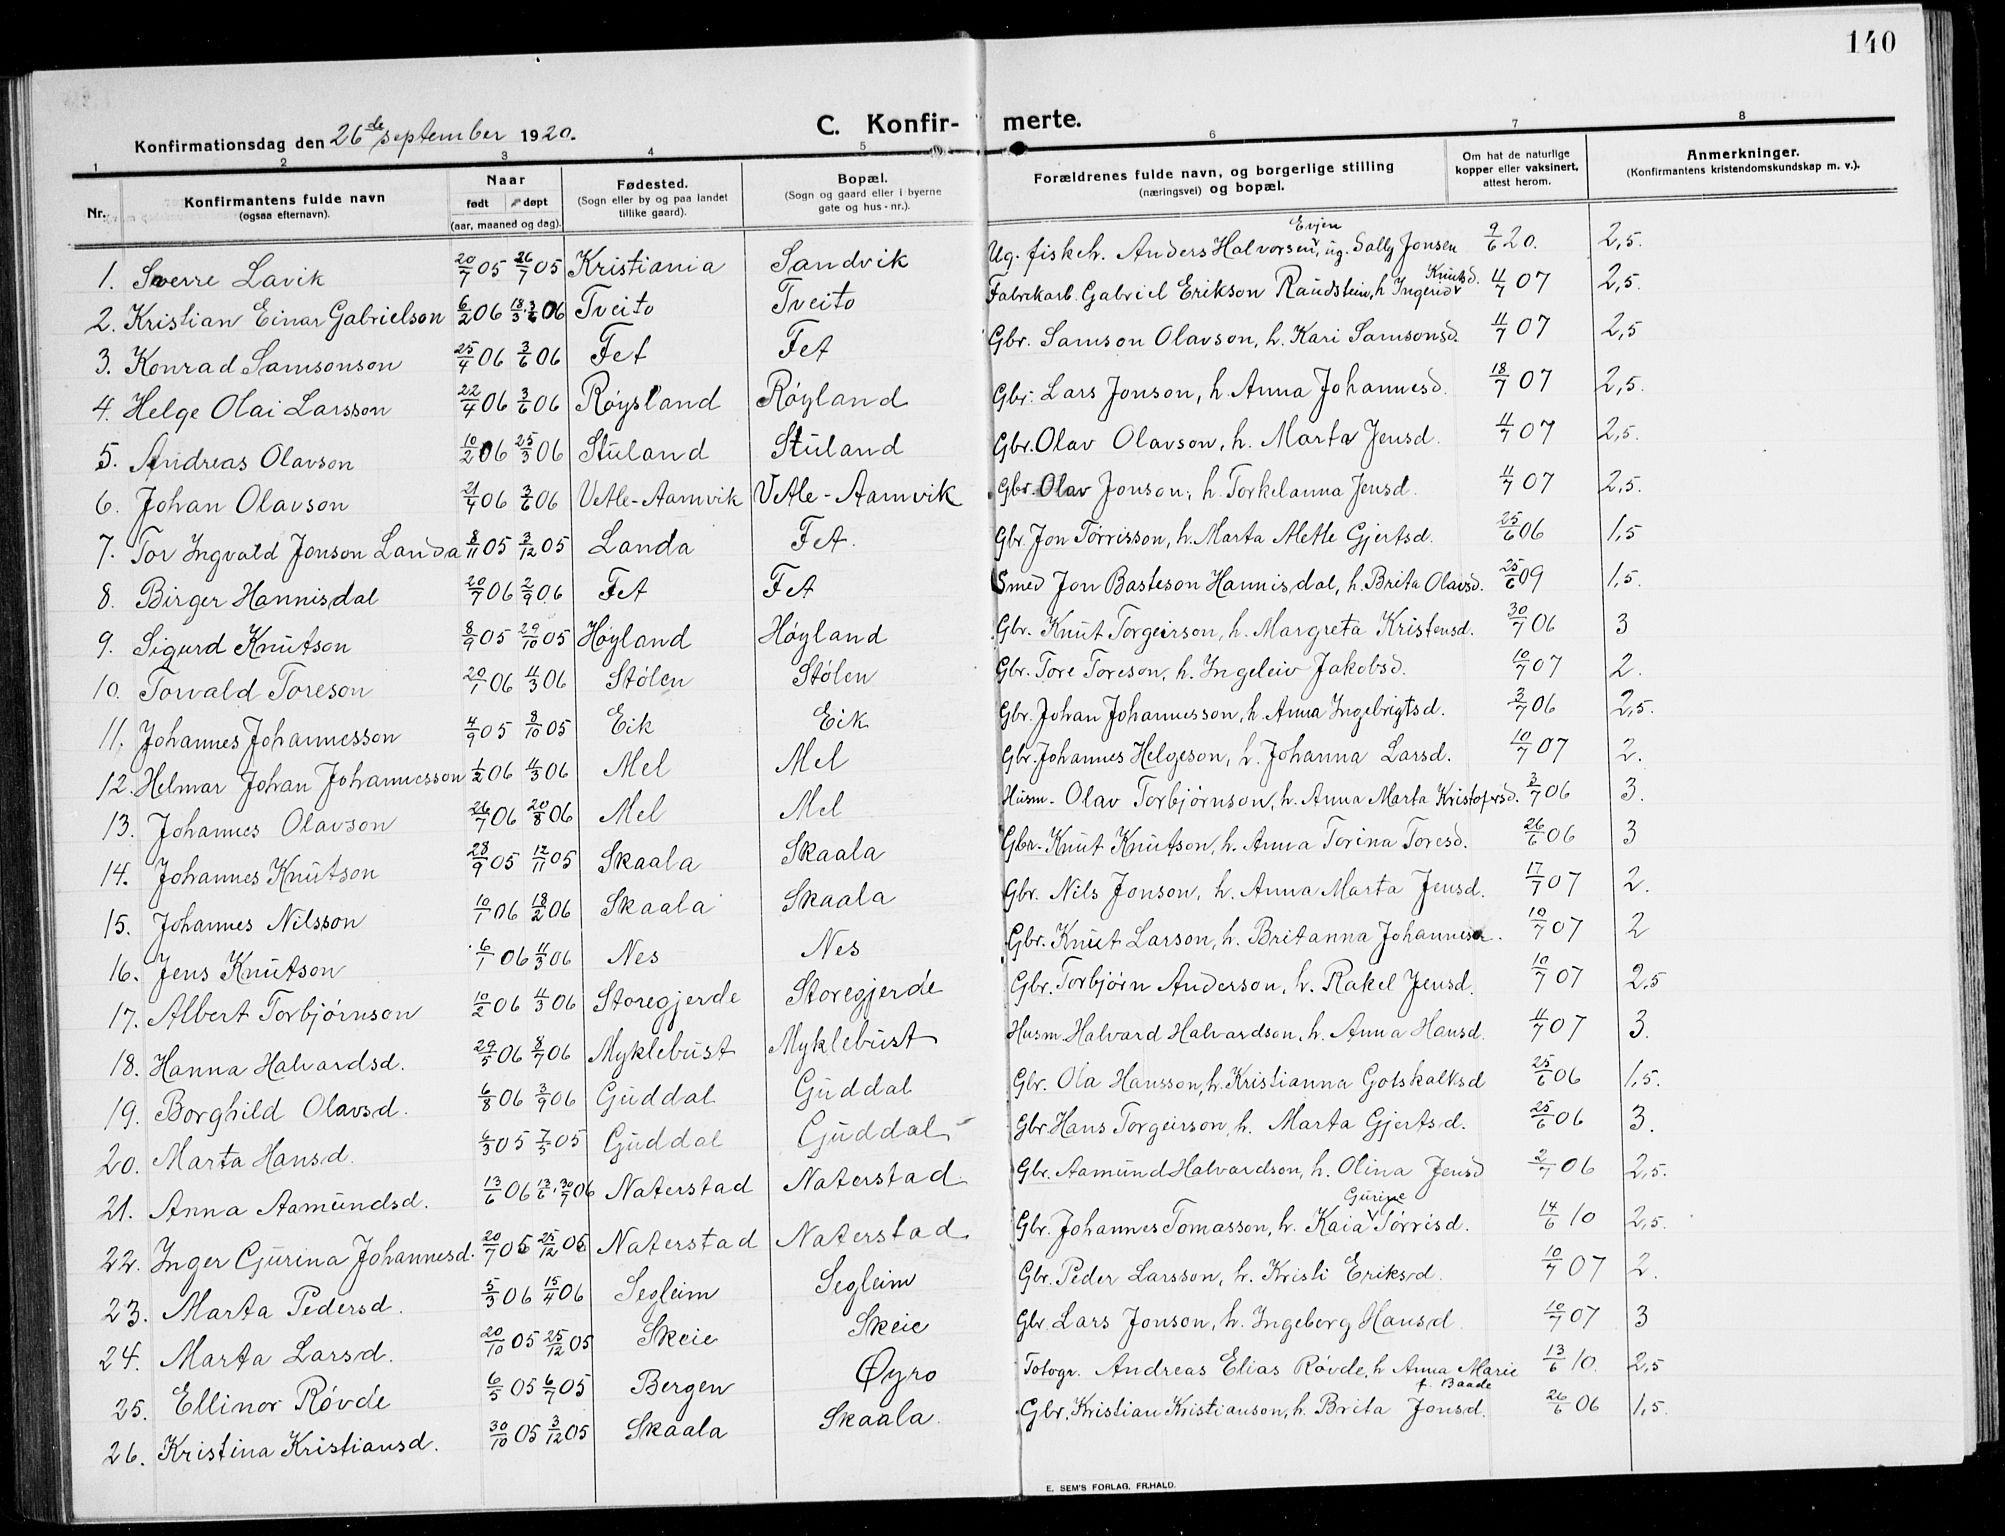 140
Konfirmationsdag den 26de september 1920.
C. Konfir- merte.
1 2 3 4 5 6 7 8
Nr. Konfirmantens fulde navn (ogsaa efternavn). Naar født døpt (aar, maaned og dag). Fødested. (Sogn eller by og paa landet tillike gaard). Bopæl. (Sogn og gaard eller i byerne gate og hus-nr.). Forældrenes fulde navn, og borgerlige stilling (næringsvei) og bopæl. Om hat de naturlige kopper eller vaksinert, attest herom. Anmerkninger. (Konfirmantens kristendomskundskap m. v.).
1. Sverre Lavik 20/7 05 26/7 05 Kristiania Sandvik Ug. fiskeh. Anders Halvorsen Evjen, ug. Sally Jonsen 9/6 20. 2,5.
2. Kristian Einar Gabrielson 6/2 06 18/3 3/6 06 Tveito Tveito Fabrikarb. Gabriel Erikson Raudstein, h. Ingerid Knutsd. 11/7 07 2,5.
3. Konrad Samsonson 25/4 06 3/6 06 Fet Fet Gbr. Samson Olavson, h. Kari Samsonsd. 11/7 07 2,5
4. Helge Olai Larsson 22/4 06 3/6 06 Røysland Røyland Gbr. Lars Jonson, h. Anna Johannesd. 18/7 07 2,5.
5. Andreas Olavson 10/2 06 25/3 06 Stuland Stuland Gbr. Olav Olavson, h. Marta Jensd. 11/7 07 2,5.
6. Johan Olavson 21/4 06 3/6 06 Vetle-Aamvik Vetle-Aamvik Gbr. Olav Jonson, h. Torkelanna Jensd. 11/7 07 2,5.
7. Tor Ingvald Jonson Landa 8/11 05 3/12 05 Landa Fet. Gbr. Jon Tørrisson, h. Marta Metle Gjertsd. 25/6 06 1,5
8. Birger Hannisdal 20/7 06 2/9 06 Fet Fet Smed Jon Basteson Hannisdal, h. Brita Olavsd. 25/6 09 1,5.
9. Sigurd Knutson 8/9 05 29/10 05 Høyland Høyland Gbr. Knut Torgeirson, h. Margreta Kristensd. 30/7 06 3
10. Torvald Toreson 20/1 06 11/3 06 Stølen Stølen Gbr. Tore Toreson, h. Ingeleiv Jakobsd. 10/7 07 2.
11. Johannes Johannesson 4/9 05 8/10 05 Eik Eik Gbr. Johan Johannesson, h. Anna Ingebrigtsd. 3/7 06 2,5.
12. Helmar Johan Johannesson 1/2 06 11/3 06 Mel Mel Gbr. Johannes Helgeson, h. Johanna Larsd. 10/7 07 2.
13. Johannes Olavson 26/7 06 20/8 06 Mel Mel Husm. Olav Torbjørnson, h. Anna Marta Kristofersd. 3/7 06 3.
14. Johannes Knutson 28/9 05 12/11 05 Skaala Skaala Gbr. Knut Knutson, h. Anna Torina Toresd. 26/6 06 3
15. Johannes Nilsson 10/1 06 18/2 06 Skaala Skaala Gbr. Nils Jonson, h. Anna Marta Jensd. 17/7 07 2.
16. Jens Knutson 6/1 06 11/3 06 Nes Nes Gbr. Knut Larson, h. Britanna Johannesd. 10/7 07 2
17. Albert Torbjørnson 10/2 06 11/3 06 Storegjerde Storegjerde Gbr. Torbjørn Anderson, h. Rakel Jensd. 10/7 07 2,5
18. Hanna Halvardsd. 29/5 06 8/7 06 Myklebust Myklebust Husm. Halvard Halvardson, h. Anna Hansd. 11/7 07 3.
19. Borghild Olavsd. 6/8 06 3/9 06 Guddal Guddal Gbr. Ola Hansson, h. Kristianna Gotskalksd 25/6 06 1,5.
20. Marta Hansd. 6/3 05 7/5 05 Guddal Guddal Gbr. Hans Torgeirson, h. Marta Gjertsd. 25/6 06 3.
21. Anna Aamundsd. 13/6 06 13/6, 30/7 06 Naterstad Naterstad Gbr. Aamund Halvardson, h. Olina Jensd 2/7 06 2,5.
22. Inger Gurina Johannesd. 20/7 05 25/12 05 Naterstad Naterstad Gbr. Johannes Tomasson, h. Kaia Gurine Tørrisd. 14/6 10 2,5.
23. Marta Pedersd. 5/3 06 15/4 06 Segleim Segleim Gbr. Peder Larsson, h. Kristi Eriksd. 10/7 07 2.
24. Marta Larsd. 20/10 05 25/12 05 Skeie Skeie Gbr. Lars Jonson, h. Ingeborg Hansd. 10/7 07 3
25. Ellinor Røvde 6/5 05 6/7 05 Bergen Øyro Fotogr. Andreas Elias Røvde, h. Anna Marie f. Baade 13/6 10. 2,5
26. Kristina Kristiansd. 30/10 05 3/12 05 Skaala Skaala. Gbr. Kristian Kristianson, h. Brita Jonsd. 26/6 06 1,5.
E. SEM'S FORLAG, FR.HALD.